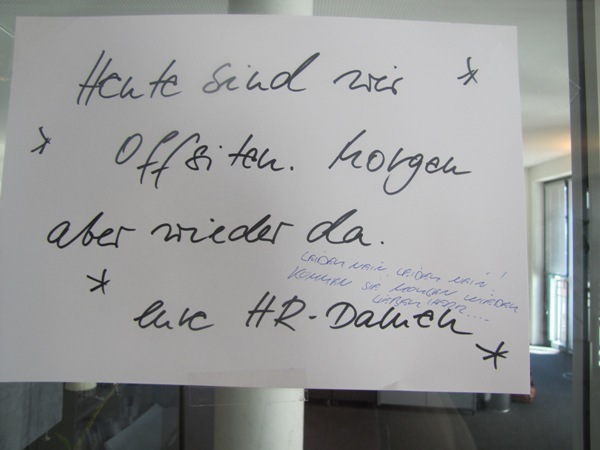 Heute sind wir
Offsiten. Morgen
aber wieder da.
LEIDER NEIN. LEIDER NEIN!
KOMMEN SIE MORGEN WIEDER
LIEBER HERR....
Eure HR-Damen